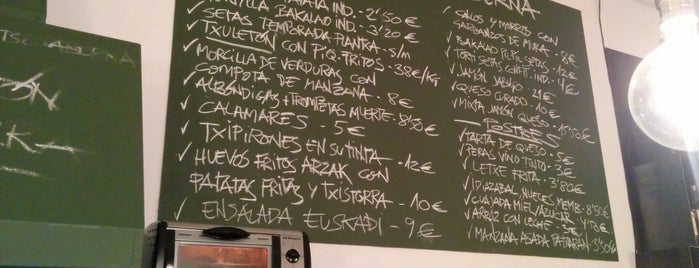 TORTILLA PATATA IND. - 2'50€
TORTILLA BAKALAO IND. - 3'20€
SETAS TEMPORADA PLANTXA - s/m
TXULETON CON PIQ. FRITOS - 38€/KG
MORCILLA DE VERDURAS CON
COMPOTA DE MANZANA - 8€
ALBÓNDIGAS + TROMPETAS MUERTE - 8'50€
CALAMARES - 5€
TXIPIRONES EN SU TINTA - 12€
HUEVOS FRITOS ARZAK CON
PATATAS FRITAS Y TXISTORRA - 10€
ENSALADA EUSKADI - 9€
CALLOS Y MORROS CON
GARBANZOS DE
BAKALAO PILPIL SETAS
TORT SETAS CONFIT. IND. - 12€
JAMÓN JABUGO - 21€
QUESO CURADO - 10€
MIXTA JAMÓN QUESO - 15'50€
POSTRES
TARTA DE QUESO - 5€
PERAS VINO TINTO - 3€
LETXE FRITA
IDIAZABAL, NUECES, MEMB. - 8'50€
CUAJADA MIEL/AZUCAR
ARROZ CON LECHE
MANZANA ASADA TATIRAN - 3'50€